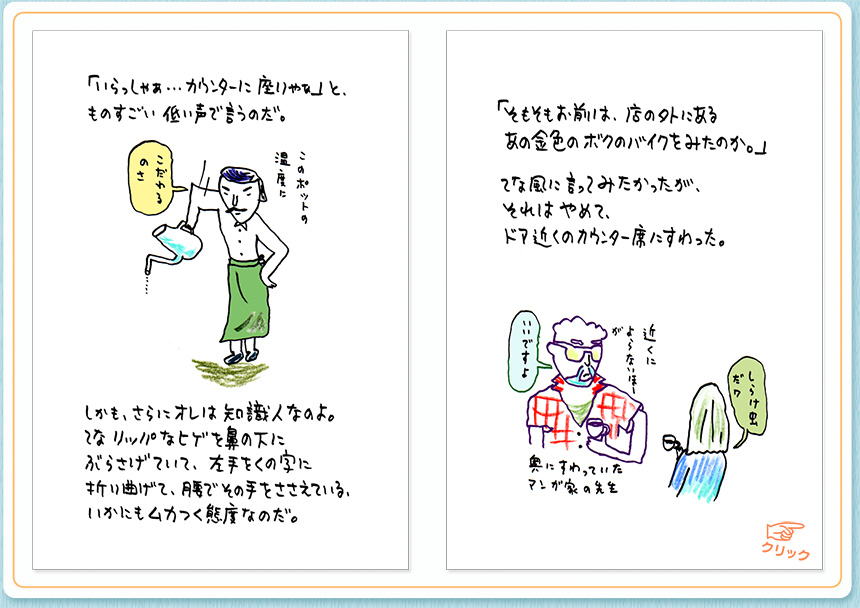 「いらっしゃぁ…カウンターに座りやな」と、
ものすごい低い声で言うのだ。
このポットの
温度に
こだわる
のさ
しかも、さらにオレは知識人なのよ。
てなリッパなヒゲを鼻の下に
ぶらさげていて、左手をくの字に
折り曲げて、腰でその手をささえている、
いかにもムカつく態度なのだ。
「そもそもお前は、店の外にある
あの金色のボクのバイクをみたのか。」
てな風に言ってみたかったが、
それはやめて、
ドア近くのカウンター席にすわった。
近くに
よらないほー
が
いいですよ
しらけ虫
だワ
奥にすわっていた
マンが家の先生
クリック